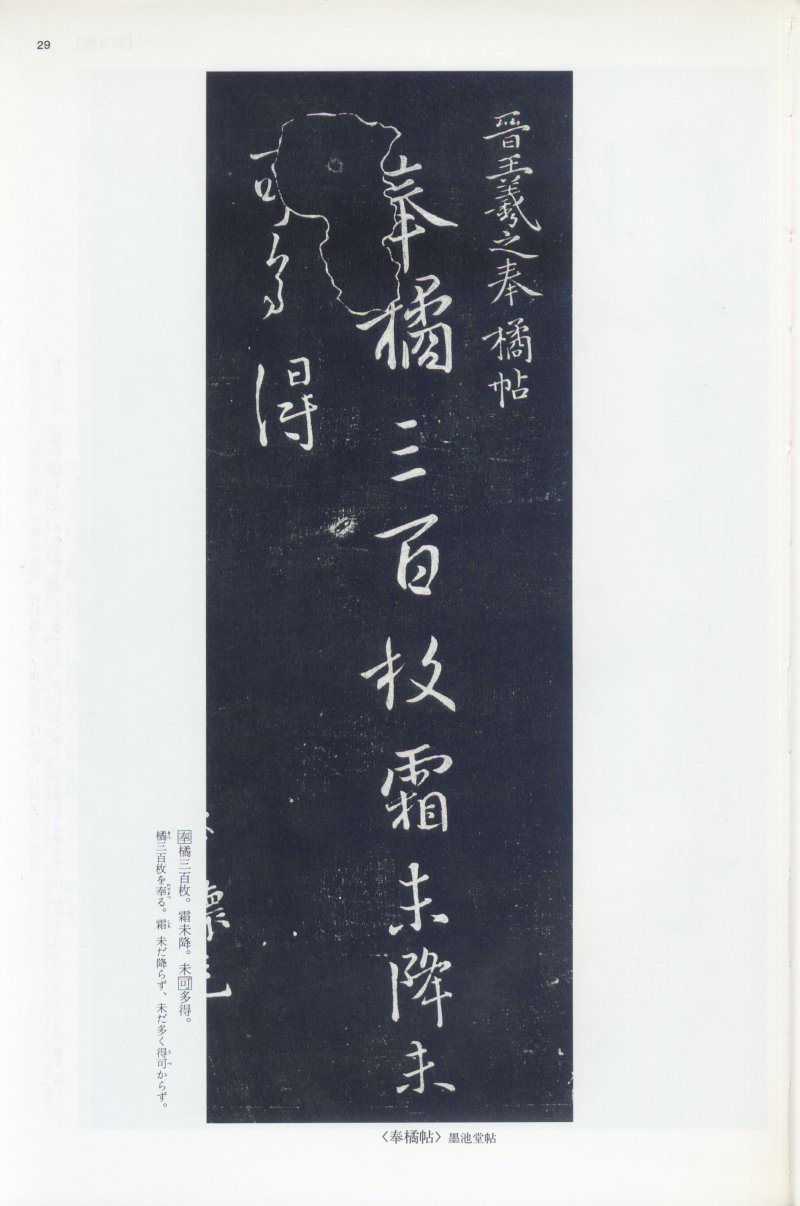 29
晉王羲之奉橘帖
奉橘三百枚霜未降未
可多得
奉橘三百枚。霜未降。未可多得。
橘三百枚を奉る。霜 未だ降らず、未だ多く得可からず。
〈奉橘帖〉 墨池堂帖